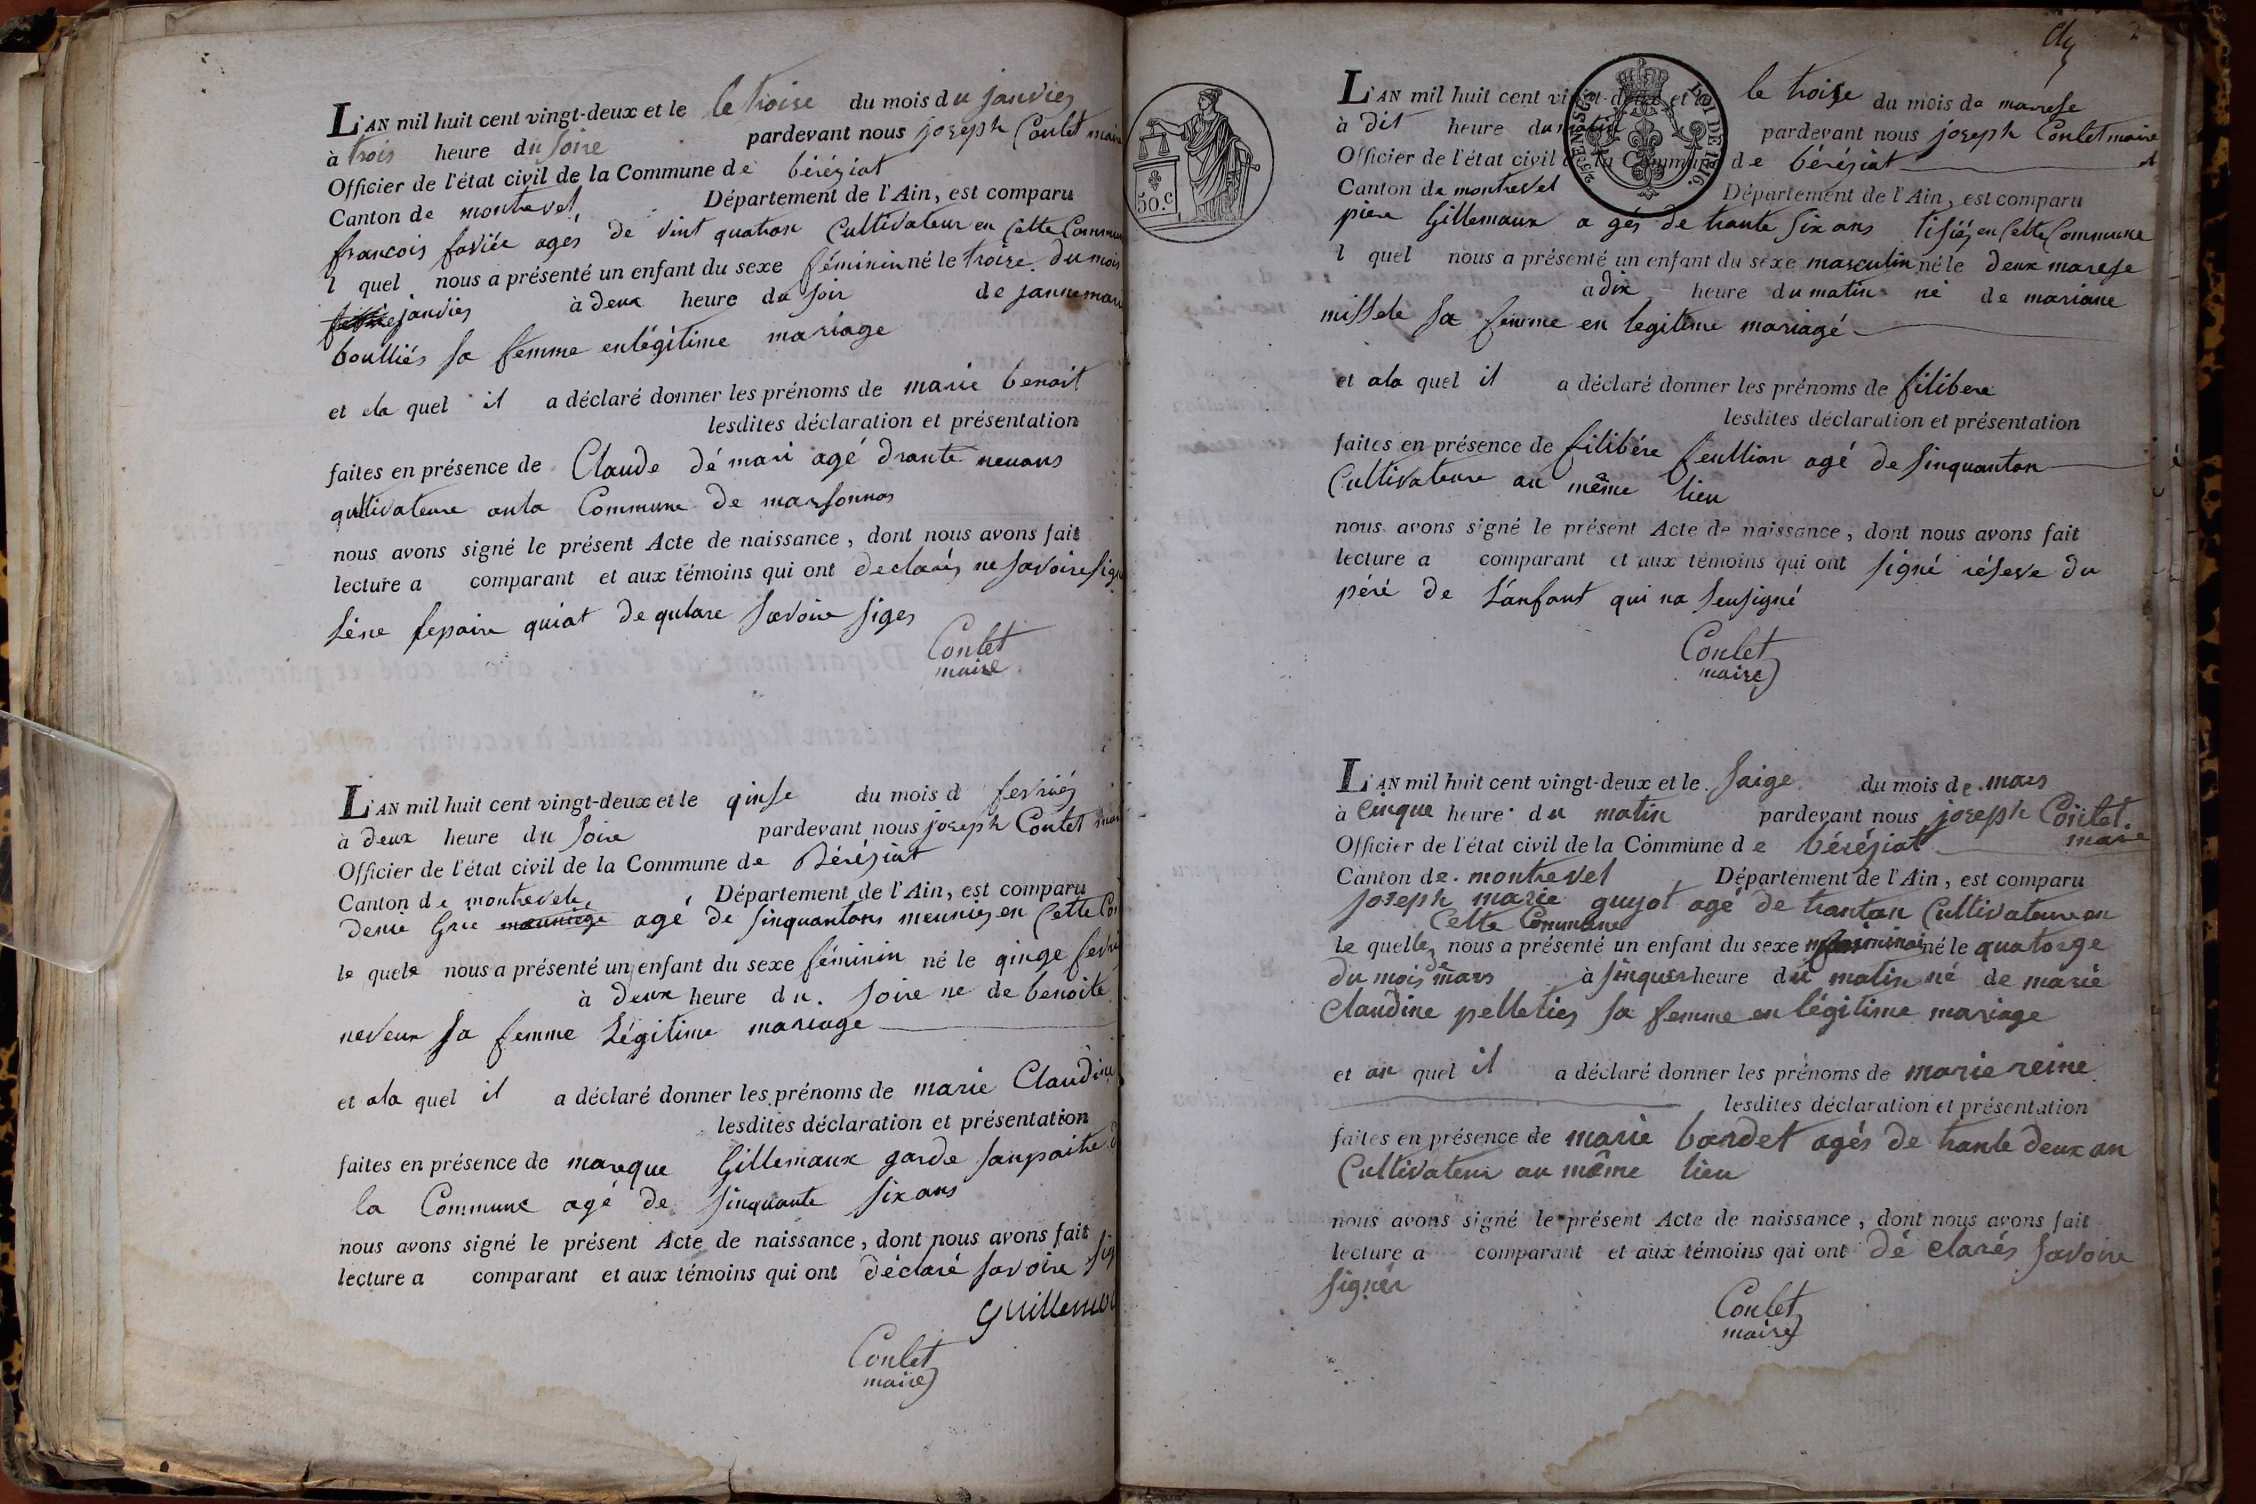 L'AN mil huit cent vingt-deux et le le troise du mois du janvier
à trois heure du soire pardevant nous joseph Coulet maire
Officier de l'état civil de la Commune de béréziat
Canton de montrevel Département de l'Ain, est comparu
francois favier agés de vint quatran Cultivateur en Cette Commun
l quel nous a présenté un enfant du sexe féminin né le troize du mois
janvier à deux heure du soir de janne mari
boulliés sa femme en légitime mariage
et ala quel il a déclaré donner les prénoms de marie benoit
lesdites déclaration et présentation
faites en présence de Claude dé mari agé drante neuans
qultivateure anla Commune de marsonnas
nous avons signé le présent Acte de naissance, dont nous avons fait
lecture a comparant et aux témoins qui ont declarés ne savoire sign
séne fepaire quiat de qulare savoire siges
Coulet
maire
L'AN mil huit cent vingt-deux et le qinse du mois d fevriés
à deux heure du soire pardevant nous joseph Coulet mair
Officier de l'état civil de la Commune de Béréziat
Canton de montrevele Département de l'Ain, est comparu
denie Gric meuniege agé de sinquantans meunier en Cette Co
le quele nous a présenté un enfant du sexe féminin né le qinze fevri
à deux heure du soire né de benoite
neveux sa femme Légitime mariage
et ala quel il a déclaré donner les prénoms de marie Claudine
lesdites déclaration et présentation
faites en présence de marque Gillemaux garde sanpaitre d
la Commune agé de sinquante six ans
nous avons signé le présent Acte de naissance, dont nous avons fait
lecture a comparant et aux témoins qui ont déclaré savoire sig
Guillemau
Coulet
maire
L'AN mil huit cent vingt-deux et le le troise du mois de marse
à dit heure du matin pardevant nous joseph Coulet maire
Officier de l'état civil de la Commune de béréziat
Canton de montrevel Département de l'Ain, est comparu
piere Gillemaux a gés de trante six ans tisiés en Cette Commune
l quel nous a présenté un enfant du sexe masculin né le deux marese
à dix heure du matin né de mariane
missele sa femme en legitime mariagé
et ala quel il a déclaré donner les prénoms de filibere
lesdites déclaration et présentation
faites en présence de filibére feullian agé de sinquantan
Cultivateure au même lieu
nous avons signé le présent Acte de naissance, dont nous avons fait
lecture a comparant et aux témoins qui ont signé réserve du
péré de L'anfant qui na seusigné
Coulet
maire
50.c
LOI DE 1816.
L'AN mil huit cent vingt-deux et le saige du mois de mars
à Cinque heure du matin pardevant nous joseph Coulet
maire
Officier de l'état civil de la Commune de béréziat
Canton de montrevel Département de l'Ain, est comparu
joseph marie guyot agé de trantan Cultivateure en
Cette Commune
le quelle nous a présenté un enfant du sexe né le quatorze
du mois de mars à sinque heure du matin né de marie
Claudine pelletier sa femme en légitime mariage
et au quel il a déclaré donner les prénoms de marie reine
lesdites déclaration et présentation
faites en présence de marie bordet agés de trante deux an
Cultivateur au même lieu
nous avons signé le présent Acte de naissance, dont nous avons fait
lecture a comparant et aux témoins qui ont dé clarés savoire
signér
Coulet
maire